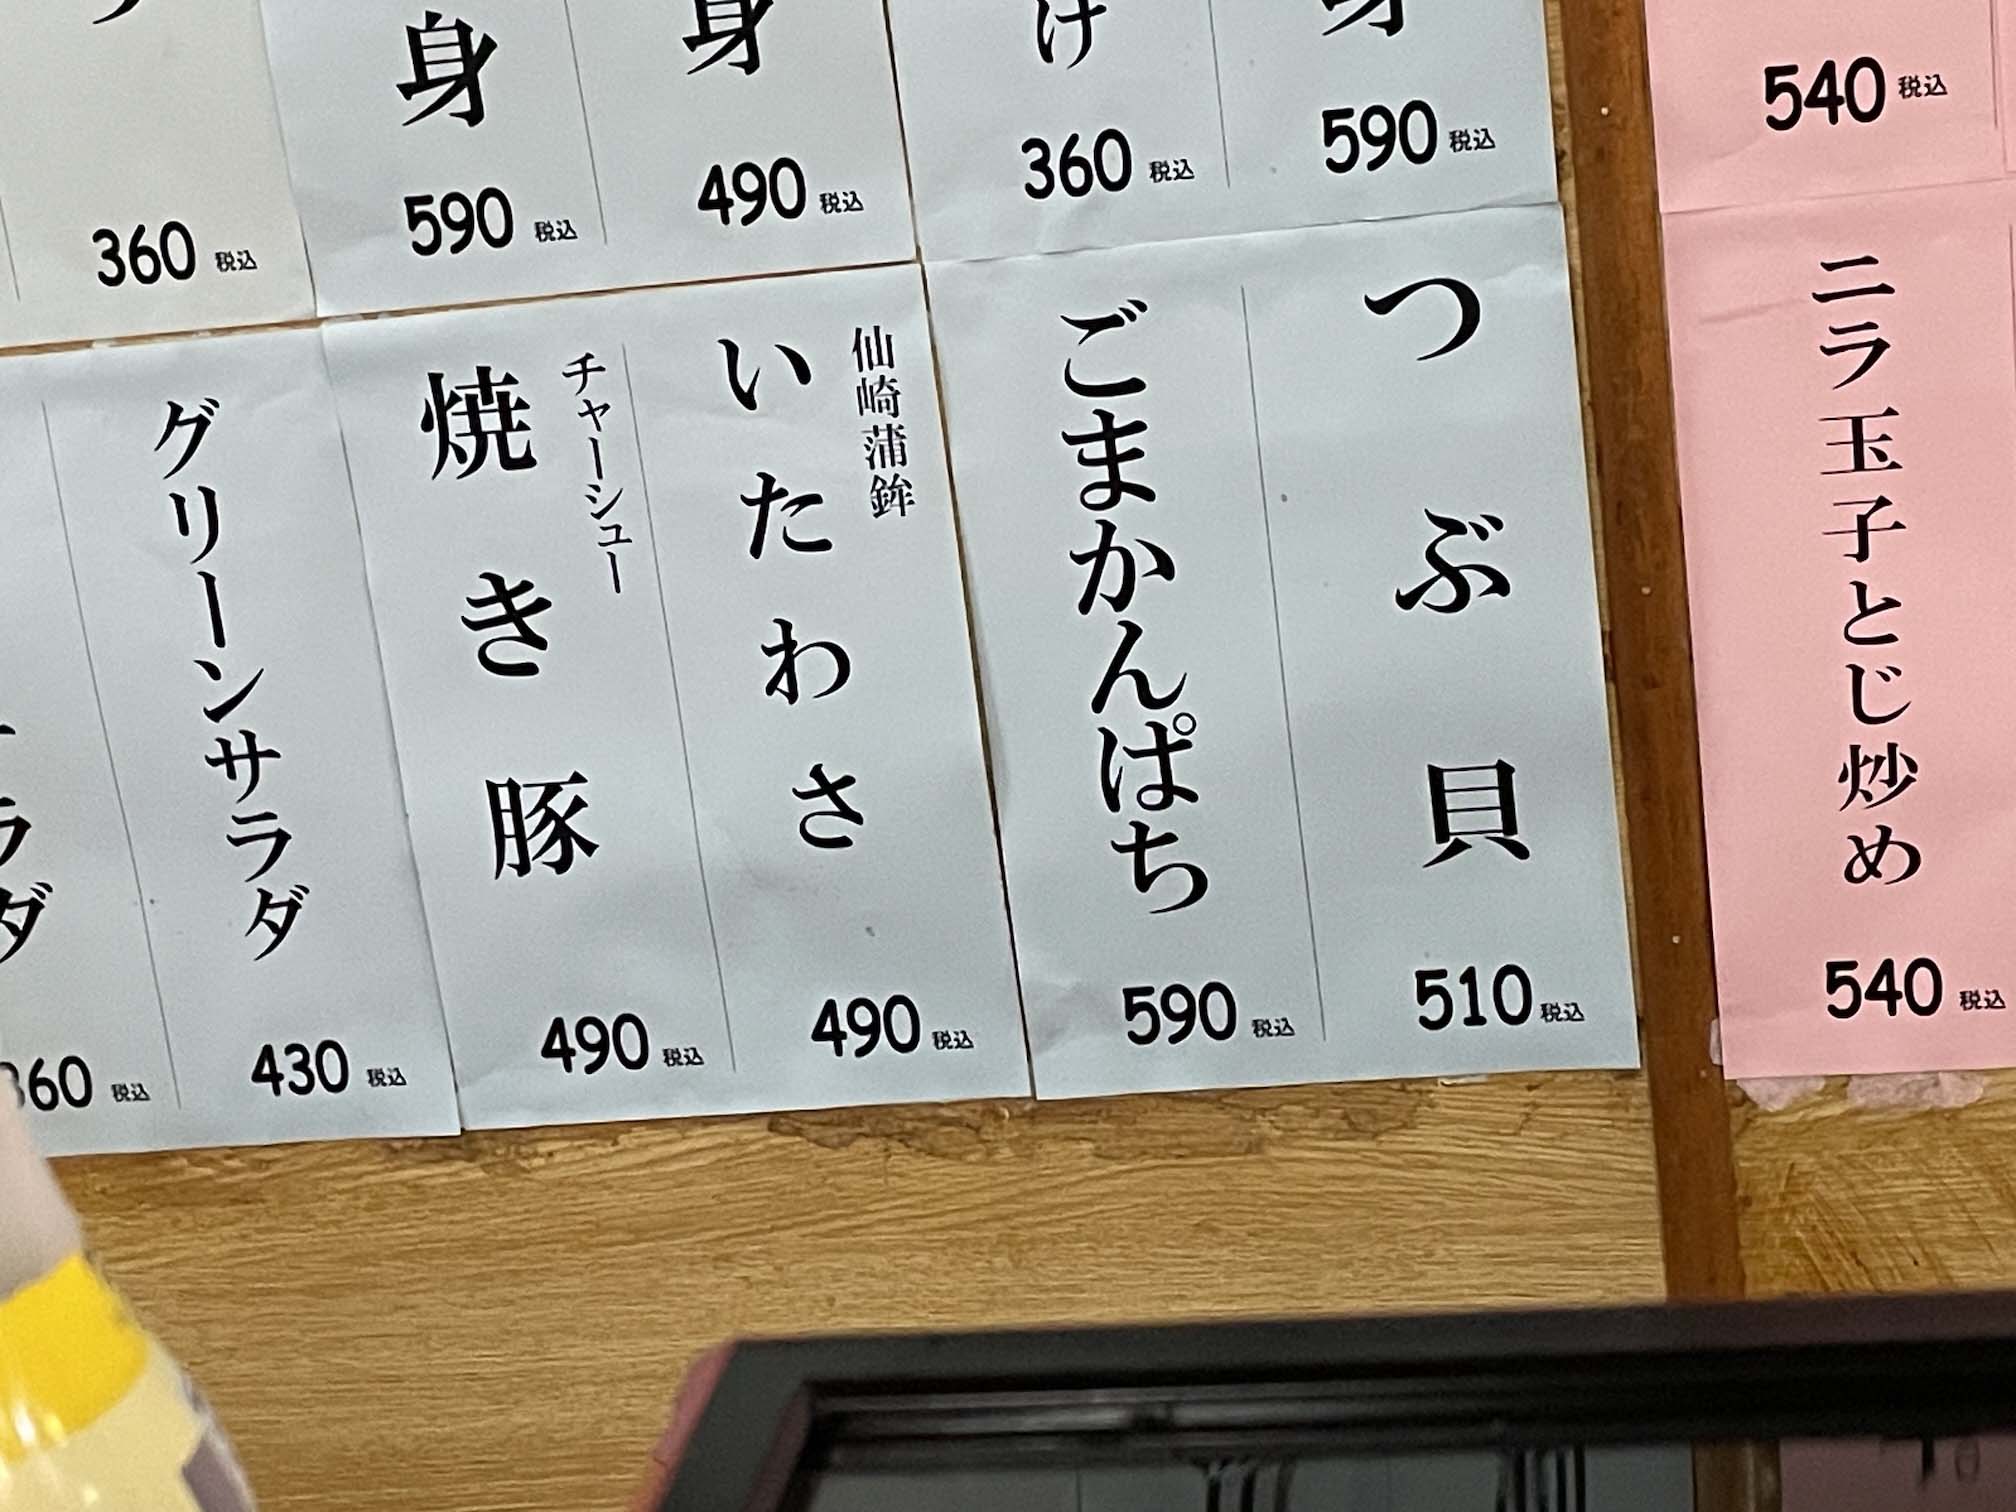 540 税込
身
590 税込
け
360 税込
身
490 税込
身
590 税込
360 税込
ニラ玉子とじ炒め
540 税込
つぶ貝
510 税込
ごまかんぱち
590 税込
仙崎蒲鉾
いたわさ
490 税込
チャーシュー
焼き豚
490 税込
グリーンサラダ
430 税込
ラダ
360 税込